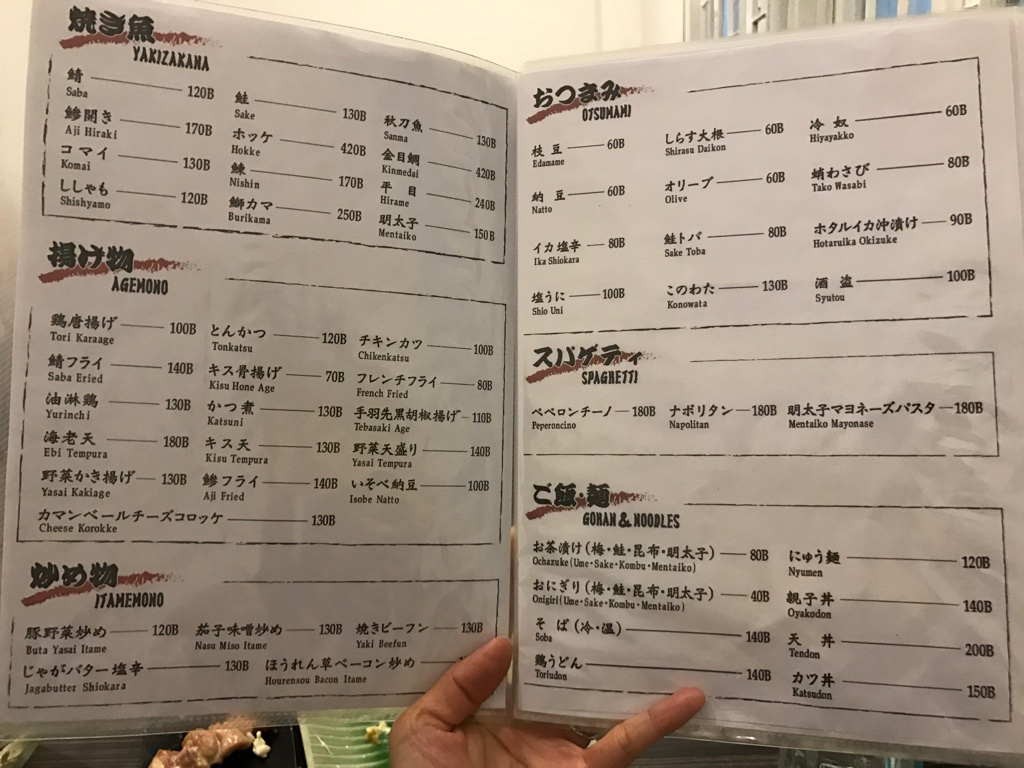 焼き魚
YAKIZAKANA
鯖 120B
Saba
鯵開き 170B
Aji Hiraki
コマイ 130B
Komai
ししゃも 120B
Shishyamo
鮭 130B
Sake
ホッケ 420B
Hokke
鰊 170B
Nishin
鰤カマ 250B
Burikama
秋刀魚 130B
Sanma
金目鯛 420B
Kinmedai
平目 240B
Hirame
明太子 150B
Mentaiko
揚げ物
AGEMONO
鶏唐揚げ 100B
Tori Karaage
鯖フライ 140B
Saba Fried
油淋鶏 130B
Yurinchi
海老天 180B
Ebi Tempura
野菜かき揚げ 130B
Yasai Kakiage
カマンベールチーズコロッケ 130B
Cheese Korokke
とんかつ 120B
Tonkatsu
キス骨揚げ 70B
Kisu Hone Age
かつ煮 130B
Katsuni
キス天 130B
Kisu Tempura
鯵フライ 140B
Aji Fried
チキンカツ 100B
Chikenkatsu
フレンチフライ 80B
French Fried
手羽先黒胡椒揚げ 110B
Tebasaki Age
野菜天盛り 140B
Yasai Tempura
いそべ納豆 100B
Isobe Natto
炒め物
ITAMEMONO
豚野菜炒め 120B
Buta Yasai Itame
茄子味噌炒め 130B
Nasu Miso Itame
焼きビーフン 130B
Yaki Beefun
じゃがバター塩辛 130B
Jagabutter Shiokara
ほうれん草ベーコン炒め
Hourensou Bacon Itame
おつまみ
OTSUMAMI
枝豆 60B
Edamame
納豆 60B
Natto
イカ塩辛 80B
Ika Shiokara
塩うに 100B
Shio Uni
しらす大根 60B
Shirasu Daikon
オリーブ 60B
Olive
鮭トバ 80B
Sake Toba
このわた 130B
Konowata
冷奴 60B
Hiyayakko
蛸わさび 80B
Tako Wasabi
ホタルイカ沖漬け 90B
Hotaruika Okizuke
酒盗 100B
Syutou
スパゲティ
SPAGHETTI
ペペロンチーノ 180B
Peperoncino
ナポリタン 180B
Napolitan
明太子マヨネーズパスタ 180B
Mentaiko Mayonase
ご飯・麺
GOHAN & NOODLES
お茶漬け(梅・鮭・昆布・明太子) 80B
Ochazuke(Ume・Sake・Kombu・Mentaiko)
おにぎり(梅・鮭・昆布・明太子) 40B
Onigiri(Ume・Sake・Kombu・Mentaiko)
そば(冷・温) 140B
Soba
鶏うどん 140B
Toriudon
にゅう麺 120B
Nyumen
親子丼 140B
Oyakodon
天丼 200B
Tendon
カツ丼 150B
Katsudon